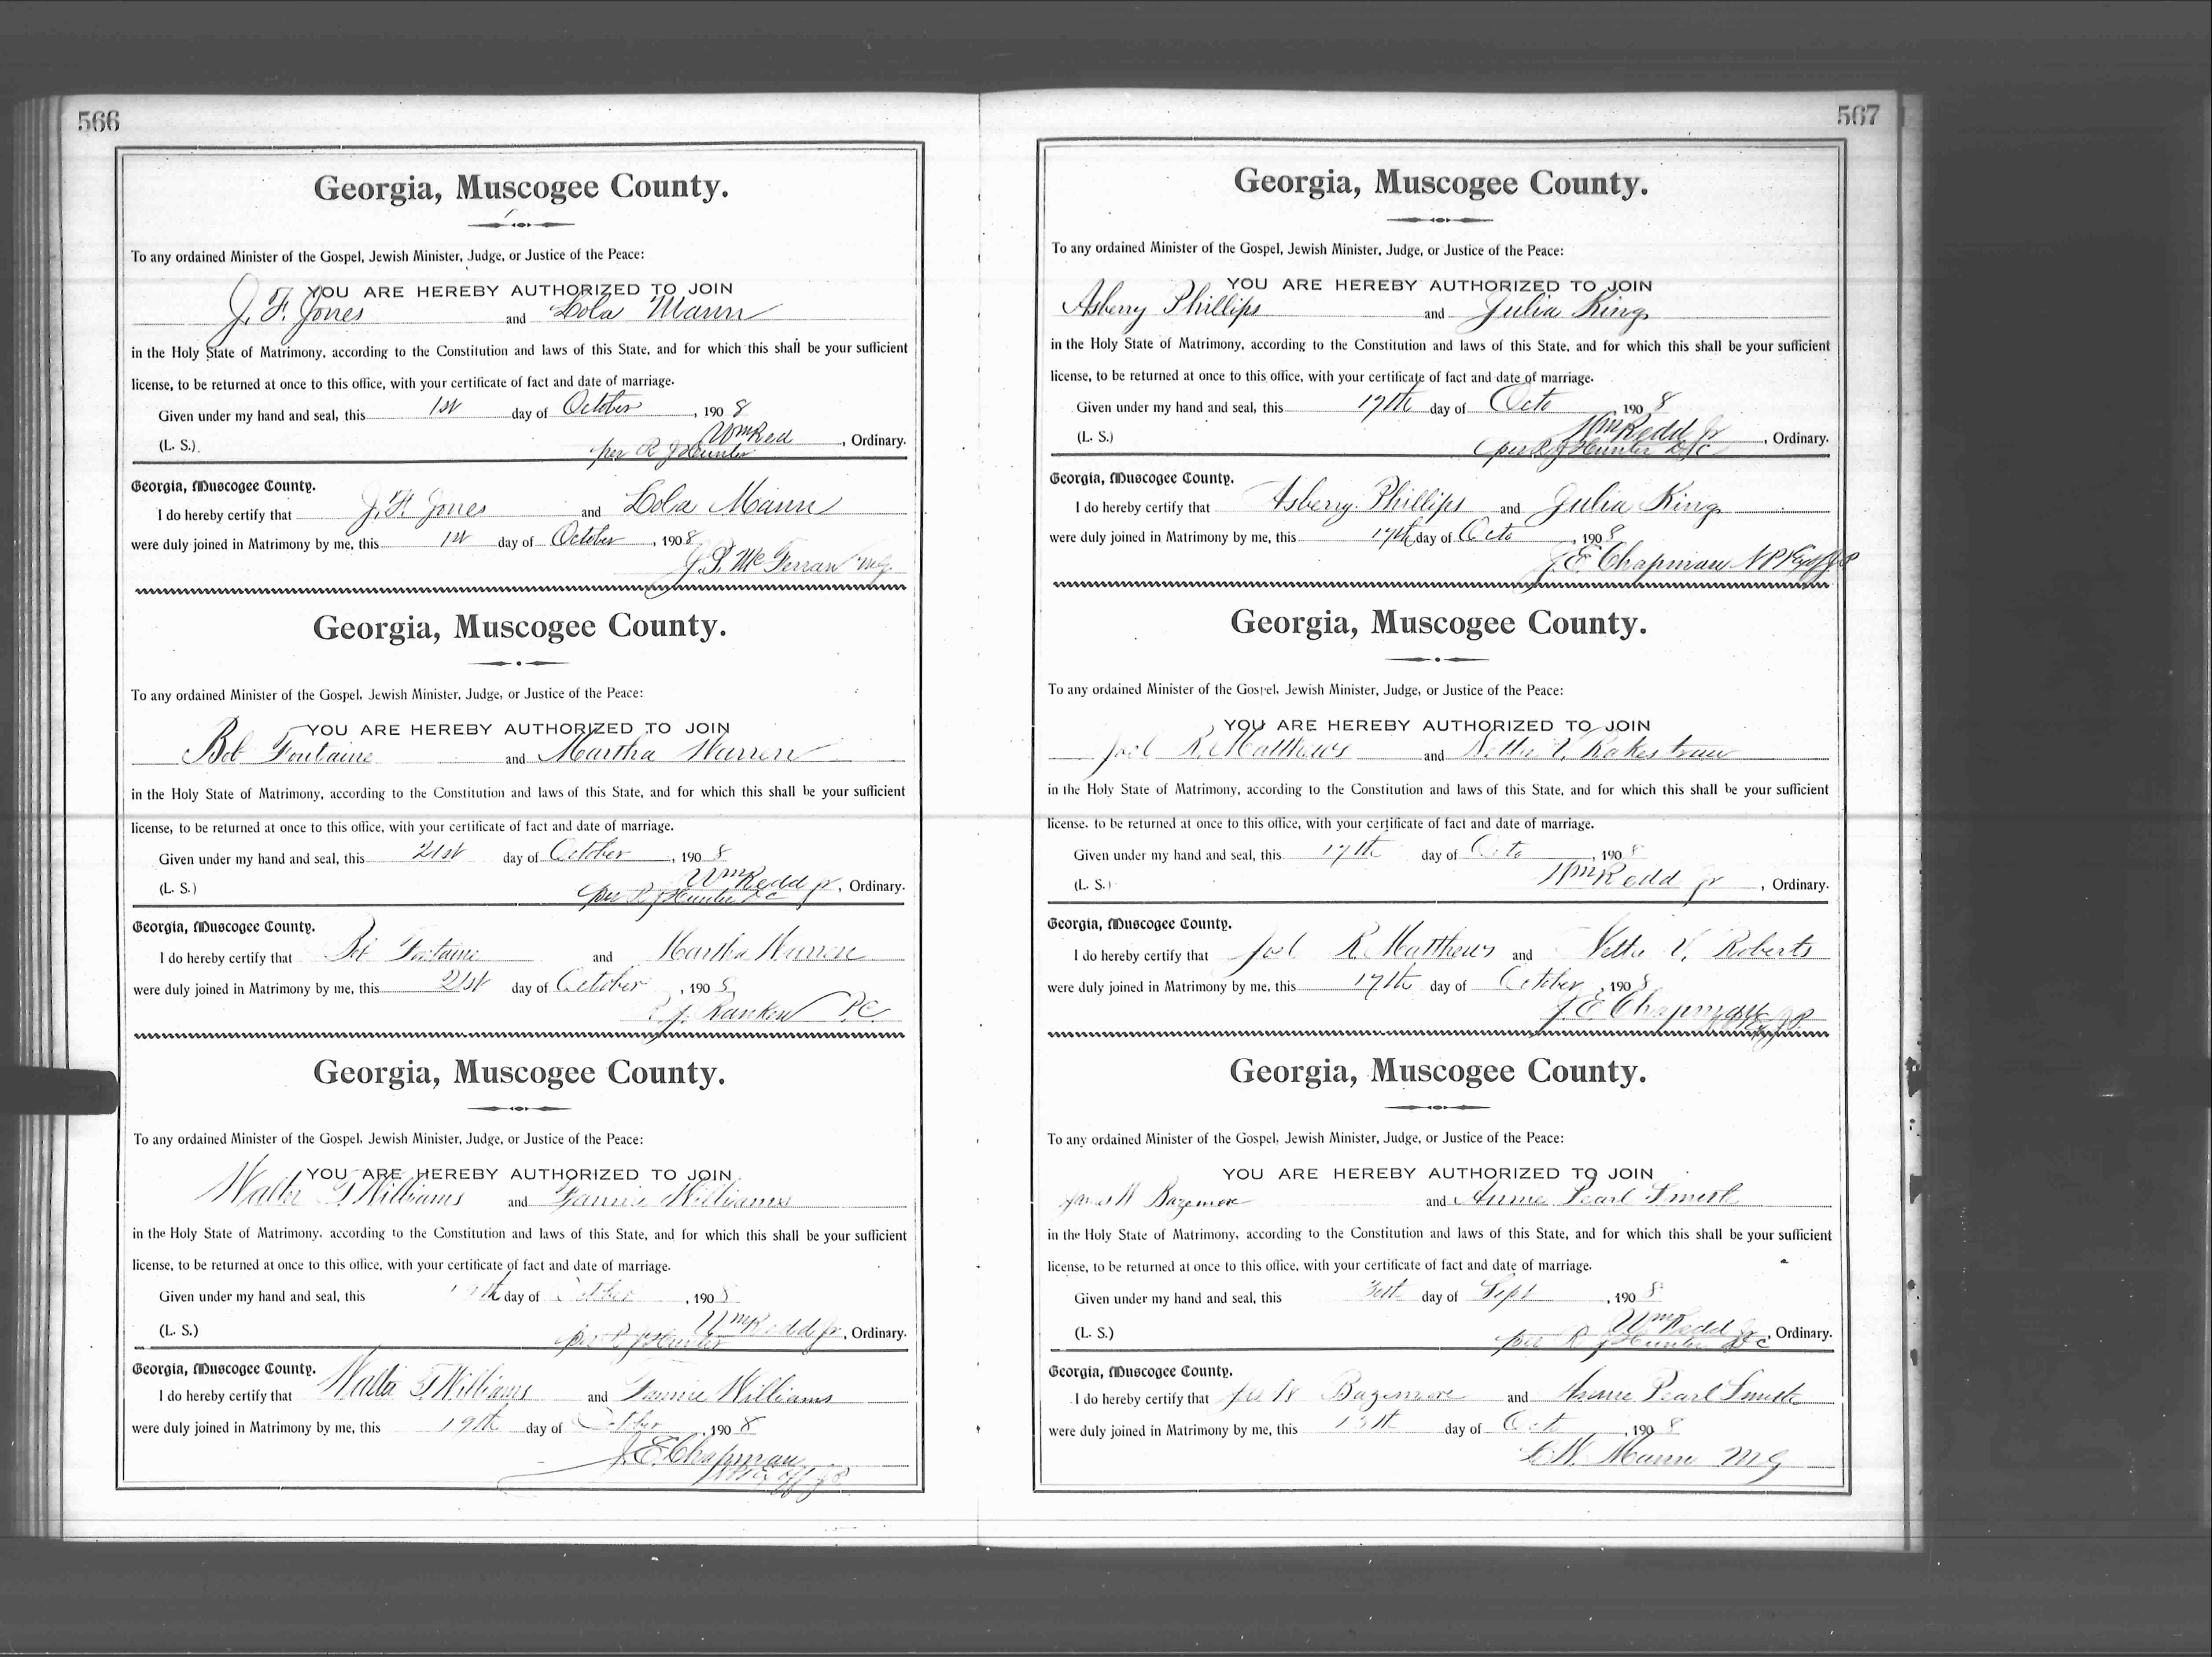 566
Georgia, Muscogee County.
To any ordained Minister of the Gospel, Jewish Minister, Judge, or Justice of the Peace:
YOU ARE HEREBY AUTHORIZED TO JOIN
J. F. Jones and Lola Mann
in the Holy State of Matrimony, according to the Constitution and laws of this State, and for which this shall be your sufficient
license, to be returned at once to this office, with your certificate of fact and date of marriage.
Given under my hand and seal, this 1st day of October, 1908
(L. S.) Wm Red, Ordinary.
per R J Hunter
Georgia, Muscogee County.
I do hereby certify that J. F. Jones and Lola Mann
were duly joined in Matrimony by me, this 1st day of October, 1908
J. S. McFerran M.G.
Georgia, Muscogee County.
To any ordained Minister of the Gospel, Jewish Minister, Judge, or Justice of the Peace:
YOU ARE HEREBY AUTHORIZED TO JOIN
Bob Fontaine and Martha Warren
in the Holy State of Matrimony, according to the Constitution and laws of this State, and for which this shall be your sufficient
license, to be returned at once to this office, with your certificate of fact and date of marriage.
Given under my hand and seal, this 21st day of October, 1908
(L. S.) Wm Redd Jr, Ordinary.
per R J Hunter D C
Georgia, Muscogee County.
I do hereby certify that Bob Fontaine and Martha Warren
were duly joined in Matrimony by me, this 21st day of October, 1908
J. Rankin P.C.
Georgia, Muscogee County.
To any ordained Minister of the Gospel, Jewish Minister, Judge, or Justice of the Peace:
YOU ARE HEREBY AUTHORIZED TO JOIN
Walter G Williams and Fannie Williams
in the Holy State of Matrimony, according to the Constitution and laws of this State, and for which this shall be your sufficient
license, to be returned at once to this office, with your certificate of fact and date of marriage.
Given under my hand and seal, this 19th day of October, 1908
(L. S.) Wm Redd Jr, Ordinary.
per R J Hunter
Georgia, Muscogee County.
I do hereby certify that Walter G Williams and Fannie Williams
were duly joined in Matrimony by me, this 19th day of October, 1908
J. E. Chapman
567
Georgia, Muscogee County.
To any ordained Minister of the Gospel, Jewish Minister, Judge, or Justice of the Peace:
YOU ARE HEREBY AUTHORIZED TO JOIN
Asberry Phillips and Julia King
in the Holy State of Matrimony, according to the Constitution and laws of this State, and for which this shall be your sufficient
license, to be returned at once to this office, with your certificate of fact and date of marriage.
Given under my hand and seal, this 17th day of Octo, 1908
(L. S.) Wm Redd Jr, Ordinary.
per R J Hunter D C
Georgia, Muscogee County.
I do hereby certify that Asberry Phillips and Julia King
were duly joined in Matrimony by me, this 17th day of Octo, 1908
J. E. Chapman N P & Ex off J P
Georgia, Muscogee County.
To any ordained Minister of the Gospel, Jewish Minister, Judge, or Justice of the Peace:
YOU ARE HEREBY AUTHORIZED TO JOIN
Joel R. Matthews and Nettie V. Rakestraw
in the Holy State of Matrimony, according to the Constitution and laws of this State, and for which this shall be your sufficient
license, to be returned at once to this office, with your certificate of fact and date of marriage.
Given under my hand and seal, this 17th day of Octo, 1908
(L. S.) Wm Redd Jr, Ordinary.
Georgia, Muscogee County.
I do hereby certify that Joel R. Matthews and Nettie V. Roberts
were duly joined in Matrimony by me, this 17th day of October, 1908
J. E. Chapman
Georgia, Muscogee County.
To any ordained Minister of the Gospel, Jewish Minister, Judge, or Justice of the Peace:
YOU ARE HEREBY AUTHORIZED TO JOIN
Bazemore and Annie Pearl Smith
in the Holy State of Matrimony, according to the Constitution and laws of this State, and for which this shall be your sufficient
license, to be returned at once to this office, with your certificate of fact and date of marriage.
Given under my hand and seal, this 30th day of Sept, 1908
(L. S.) Wm Redd Jr, Ordinary.
per R J Hunter D C
Georgia, Muscogee County.
I do hereby certify that Bazemore and Annie Pearl Smith
were duly joined in Matrimony by me, this day of Oct, 1908
Mann M G